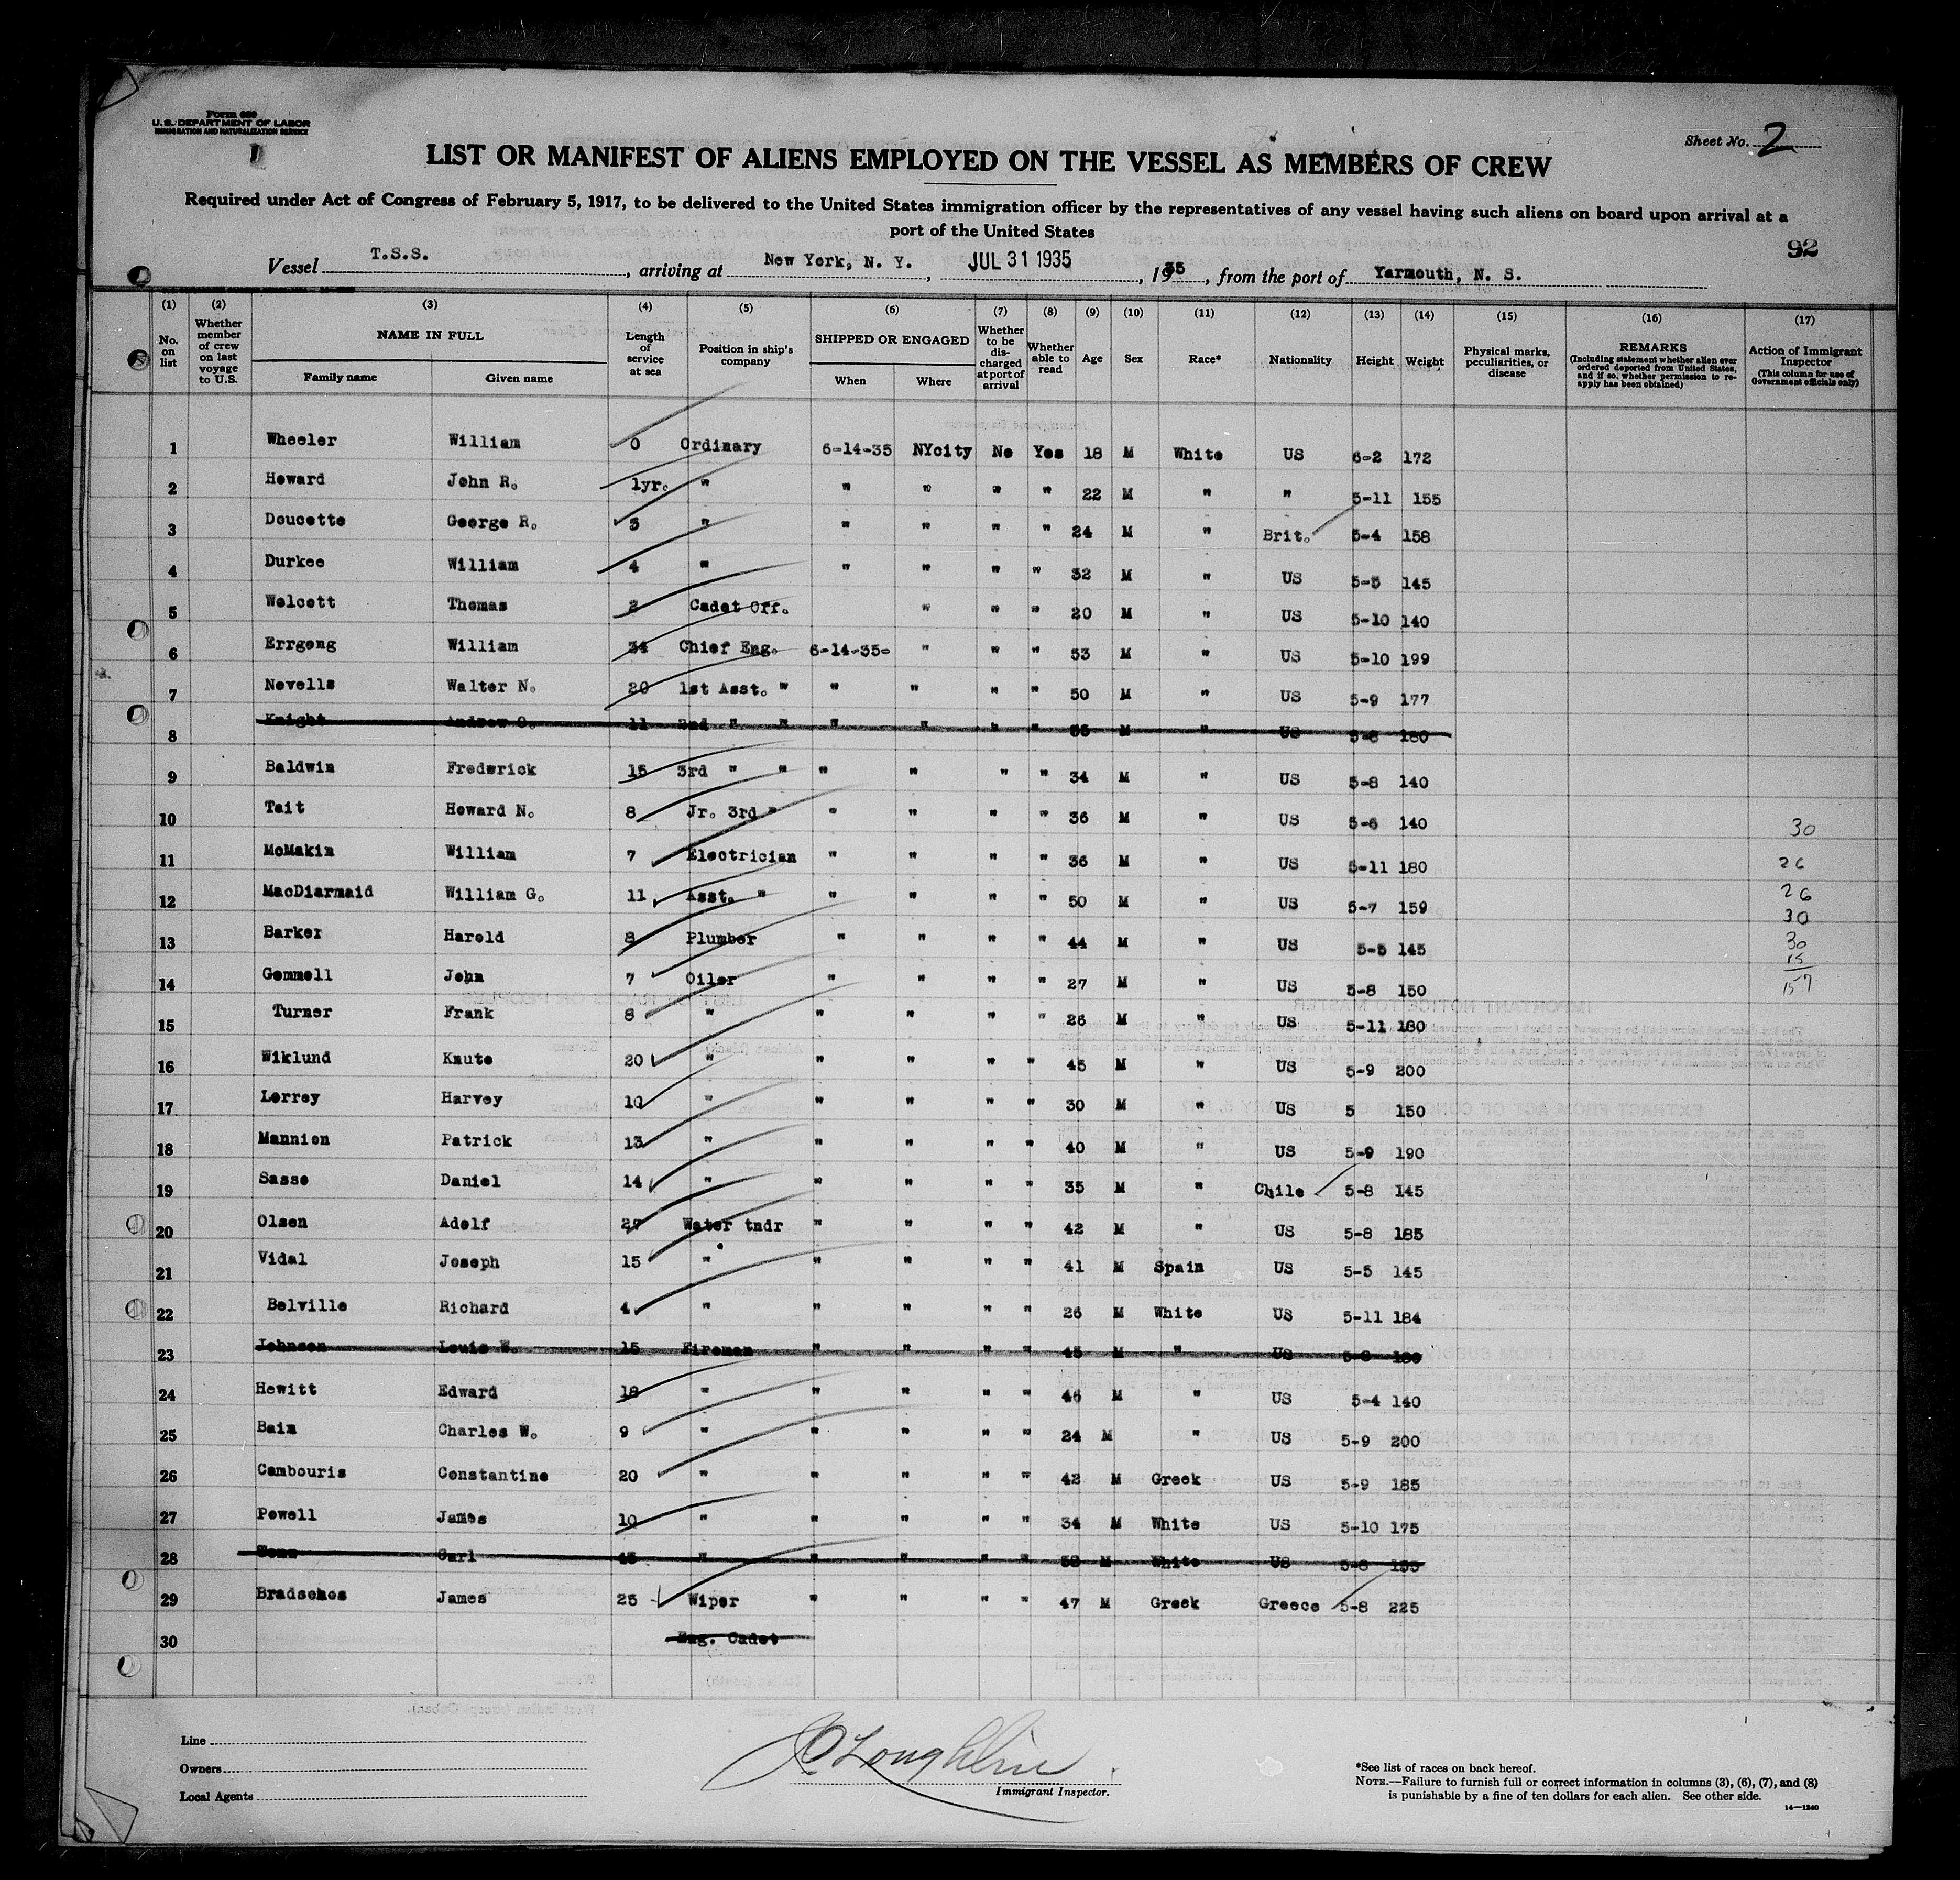 Form 680
U. S. DEPARTMENT OF LABOR
IMMIGRATION AND NATURALIZATION SERVICE
Sheet No. 2
LIST OR MANIFEST OF ALIENS EMPLOYED ON THE VESSEL AS MEMBERS OF CREW
Required under Act of Congress of February 5, 1917, to be delivered to the United States immigration officer by the representatives of any vessel having such aliens on board upon arrival at a
port of the United States
92
Vessel T.S.S. , arriving at New York, N. Y. , JUL 31 1935 , 1935 , from the port of Yarmouth, N. S.
(1) (2) (3) (4) (5) (6) (7) (8) (9) (10) (11) (12) (13) (14) (15) (16) (17)
No. on list Whether member of crew on last voyage to U.S. NAME IN FULL Family name Given name Length of service at sea Position in ship's company SHIPPED OR ENGAGED When Where Whether to be discharged at port of arrival Whether able to read Age Sex Race* Nationality Height Weight Physical marks, peculiarities, or disease REMARKS (Including statement whether alien ever ordered deported from United States, and if so, whether permission to re-apply has been obtained) Action of Immigrant Inspector (This column for use of Government officials only)
1 Wheeler William 0 Ordinary 6-14-35 NYcity No Yes 18 M White US 6-2 172
2 Howard John R. 1yr. " " " " " 22 M " " 5-11 155
3 Doucette George R. 3 " " " " " 24 M " Brit. 5-4 158
4 Durkee William 4 " " " " " 32 M " US 5-5 145
5 Wolcott Thomas 2 Cadet Off. " " " 20 M " US 5-10 140
6 Errgong William 34 Chief Eng. 6-14-35- " " " 53 M " US 5-10 199
7 Nevells Walter N. 20 1st Asst. " " " " " 50 M " US 5-9 177
8 Knight Andrew O. 11 2nd " " " " " " M " US 5-8 180
9 Baldwin Frederick 15 3rd " " " " " " 34 M " US 5-8 140
10 Tait Howard N. 8 Jr. 3rd " " " " " 36 M " US 5-6 140 30
11 McMakin William 7 Electrician " " " " 36 M " US 5-11 180 26
12 MacDiarmaid William G. 11 Asst. " " " " " 50 M " US 5-7 159 26
30
13 Barker Harold 8 Plumber " " " " 44 M " US 5-5 145 30
15
14 Gemmell John 7 Oiler " " " " 27 M " US 5-8 150 157
15 Turner Frank 8 " " " " " 26 M " US 5-11 180
16 Wiklund Knute 20 " " " " " 45 M " US 5-9 200
17 Lorrey Harvey 10 " " " " " 30 M " US 5 150
18 Mannion Patrick 13 " " " " " 40 M " US 5-9 190
19 Sasso Daniel 14 " " " " " 35 M " Chile 5-8 145
20 Olsen Adolf 27 Water tndr " " " " 42 M " US 5-8 185
21 Vidal Joseph 15 " " " " " 41 M Spain US 5-5 145
22 Belville Richard 4 " " " " " 26 M White US 5-11 184
23 Johnson Louis W. 15 Fireman " " " " 45 M " US 5-8
24 Hewitt Edward 18 " " " " " 46 M " US 5-4 140
25 Bain Charles W. 9 " " " " " 24 M " US 5-9 200
26 Cambouris Constantine 20 " " " " " 42 M Greek US 5-9 185
27 Powell James 10 " " " " " 34 M White US 5-10 175
28 Carl " " " " " M White US 5-8
29 Bradsches James 25 Wiper " " " " 47 M Greek Greece 5-8 225
30 Eng. Cadet
Line
Owners
Local Agents
J O'Loughlin
Immigrant Inspector.
*See list of races on back hereof.
NOTE.—Failure to furnish full or correct information in columns (3), (6), (7), and (8)
is punishable by a fine of ten dollars for each alien. See other side.
14—1240